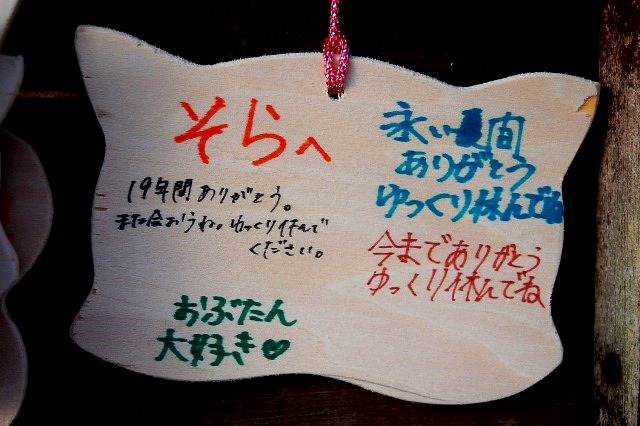 そらへ
19年間ありがとう。
また会おうね。ゆっくり休んで
ください。
おぶたん
大好き♥
永い間
ありがとう
ゆっくり休んでね
今までありがとう
ゆっくり休んでね